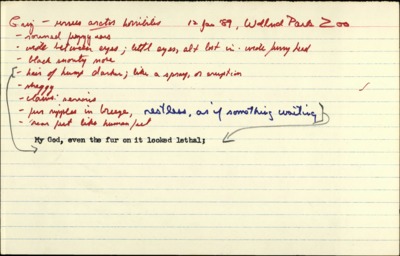 Griz - ursus arctos horribilis 12 Jan 89, Woodland Park Zoo
- rounded piggy ears
- wide between eyes; little eyes, alt lost in wide furry head
- black snouty nose
- hair of hump darker; like a spray, or eruption
- shaggy
- claws
- fur ripples in breeze, restless, as if something waiting
- rear feet like human feet
My God, even the fur on it looked lethal;